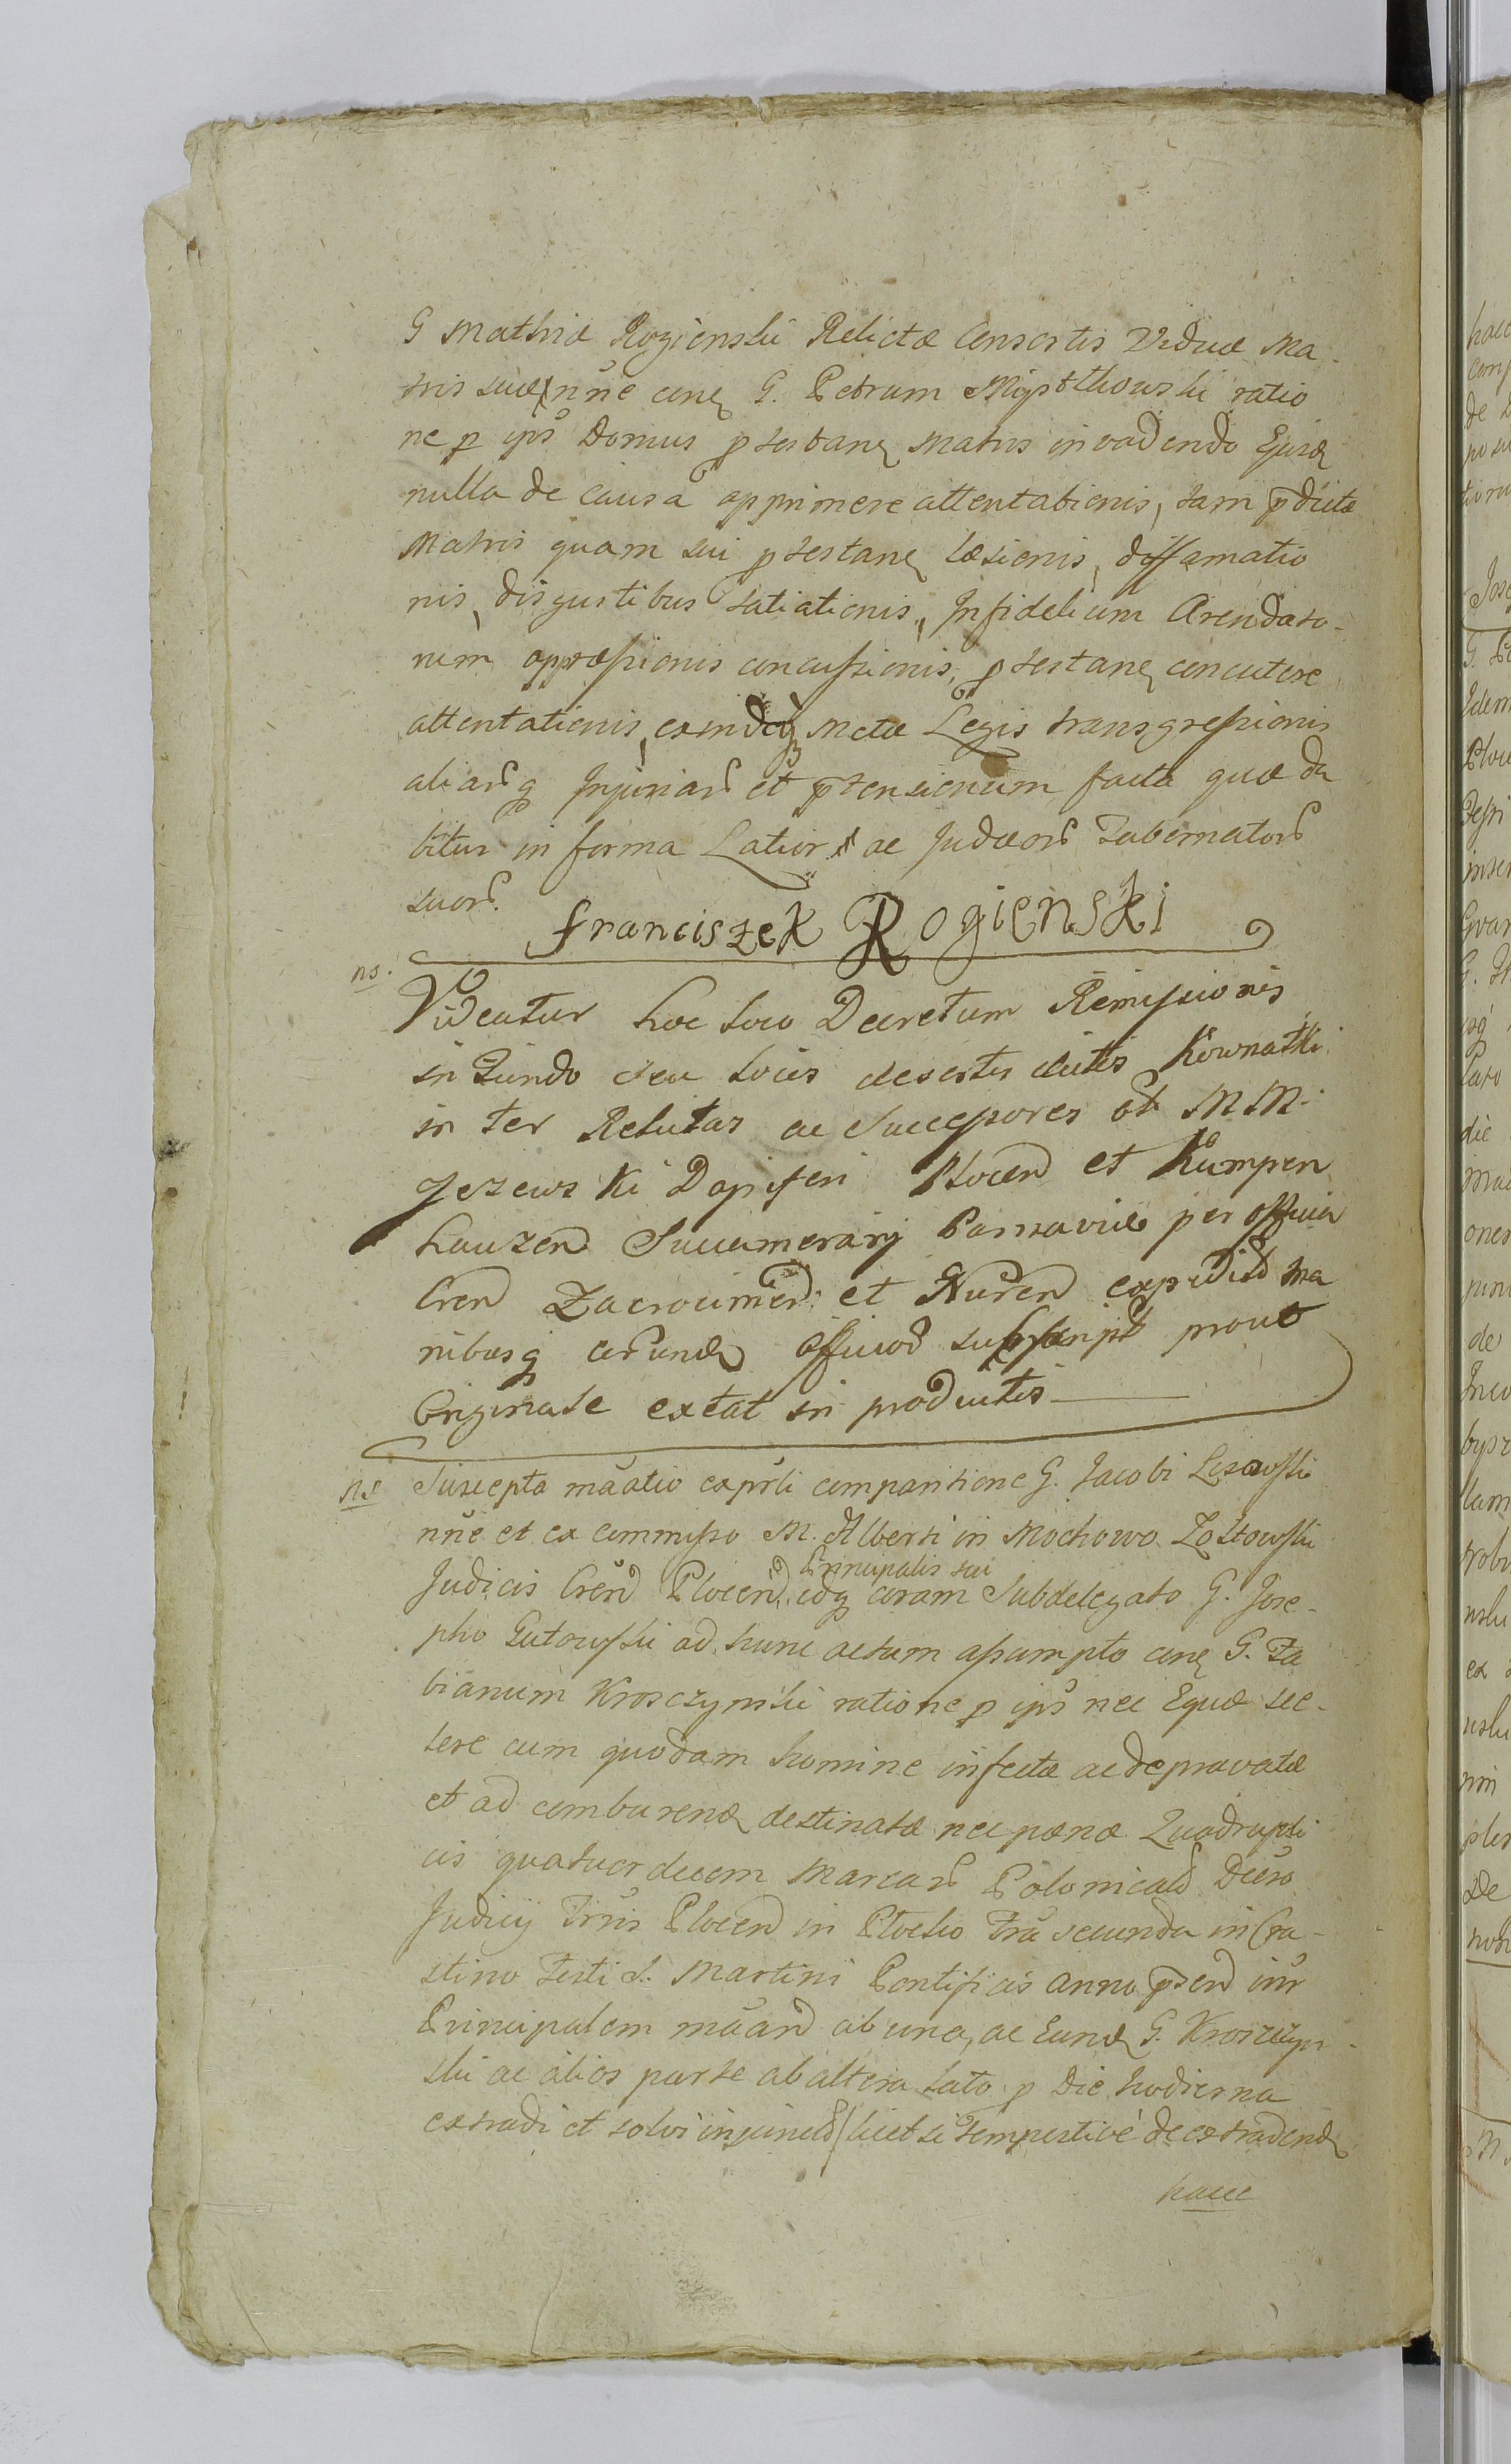 G Mathiæ Rogienski Relictæ Consortis Viduæ Ma-
tris suæ nne conq G. Petrum ratio
ne p ips Domus ptestanq Matris invadendo Ejusdq
nulla de causa opprimere attentationis, tam pdictæ
Matris quam sui ptestanq læsionis, diffamatio
nis, disgustibus satiationis, Infidelium Arendato-
rum oppressionis concussionis, ptestanq concutere
attentationis, Metæ Legis transgressionis
aliarq Injuriar et ptensionum facta quæ da
bitur in forma Latiori ac Judæor Tabernator
suor.
franciszek Rogienski
ns.
Videatur hoc loco Decretum Remissionis
in fundo seu locis desertis dictis Kownatki
inter Relictas ac Successores ol MM.
Jezewski Dapiferi Plocen et Kumpen
hauzen Succamerarij Parnaviæ per officia
Cren Zacrocimen et Nuren expedit ma
nibusq eorundq officior subscript prout
Originale extat in productis
ns Suscepta maatio exprsli comparitione G. Jacobi Lesowski
nne et ex commisso M. Alberti in Mochowo Zoltowski
Principalis sui
Judicis Cren Plocen, idq coram Subdelegato G. Jose-
pho Gutowski ad hunc actum assumpto conq G. Fa
bianum Krosczynski ratione p ips nec Equæ sce-
lere cum quodam homine infectæ ac depravatæ
et ad comburendq destinatæ nec pænæ Quadrupli
cis quatuordecem Marcar Polonicali Decro
Judicij Trris Plocen in Plocko fria secunda in Cra-
stino Festi S. Martini Pontificis anno psen intr
Principalem maan ab una, ac Eundq G. Krosczyn-
ski ac alios parte ab altera lato p Die hodierna
extradi et solvi injunct licet se tempestivè de extradendq
hacce